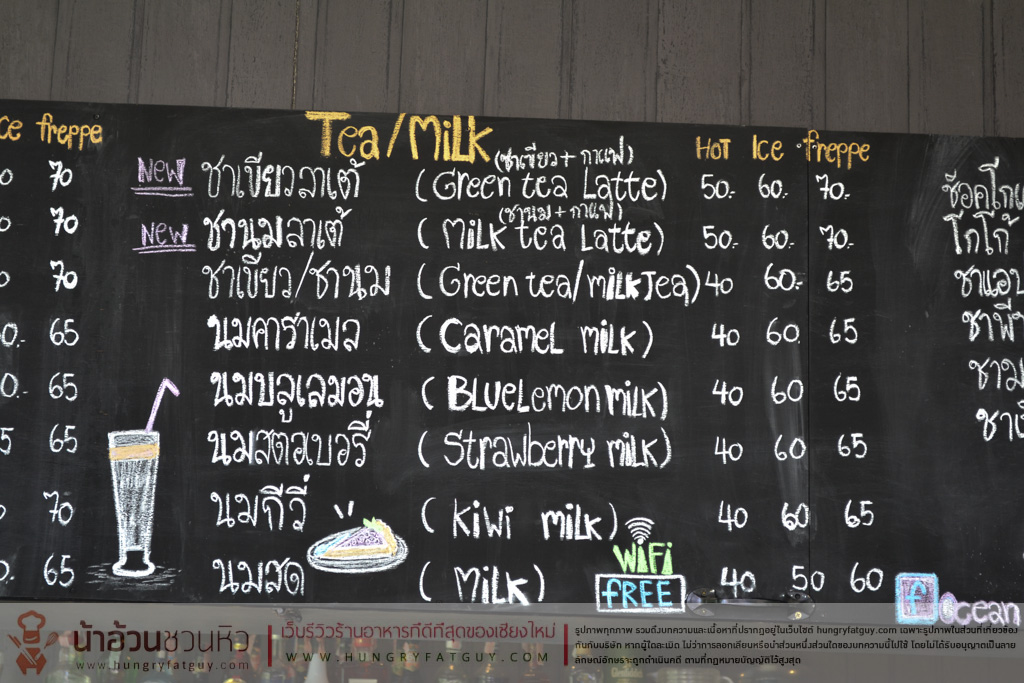 Tea/Milk HOT Ice freppe
(ชาเขียว + กาแฟ)
New ชาเขียวลาเต้ (Green tea Latte) 50.- 60.- 70.-
(ชานม + กาแฟ)
New ชานมลาเต้ (Milk tea Latte) 50.- 60.- 70.-
ชาเขียว/ชานม (Green tea/milk Tea) 40 60.- 65
นมคาราเมล (Caramel milk) 40 60 65
นมบลูเลมอน (BLUELemon milk) 40 60 65
นมสตอเบอรี่ (Strawberry milk) 40 60 65
นมกีวี่ (Kiwi milk) 40 60 65
นมสด (Milk) 40 50 60
WiFi
FREE
Ice freppe
70
70
70
65
65
65
70
65
โกโก้
f ocean
น้าอ้วนชวนหิว
www.hungryfatguy.com
เว็บรีวิวร้านอาหารที่ดีที่สุดของเชียงใหม่
WWW.HUNGRYFATGUY.COM
รูปภาพทุกภาพ รวมถึงบทความและเนื้อหาที่ปรากฏอยู่ในเว็บไซต์ hungryfatguy.com เฉพาะรูปภาพในส่วนที่เกี่ยวข้อง
กับทีมบริษัท หากผู้ใดละเมิด ไม่ว่าการลอกเลียนหรือนำส่วนหนึ่งส่วนใดของบทความนี้ไปใช้ โดยไม่ได้รับอนุญาตเป็นลาย
ลักษณ์อักษรจะถูกดำเนินคดี ตามที่กฎหมายบัญญัติไว้สูงสุด